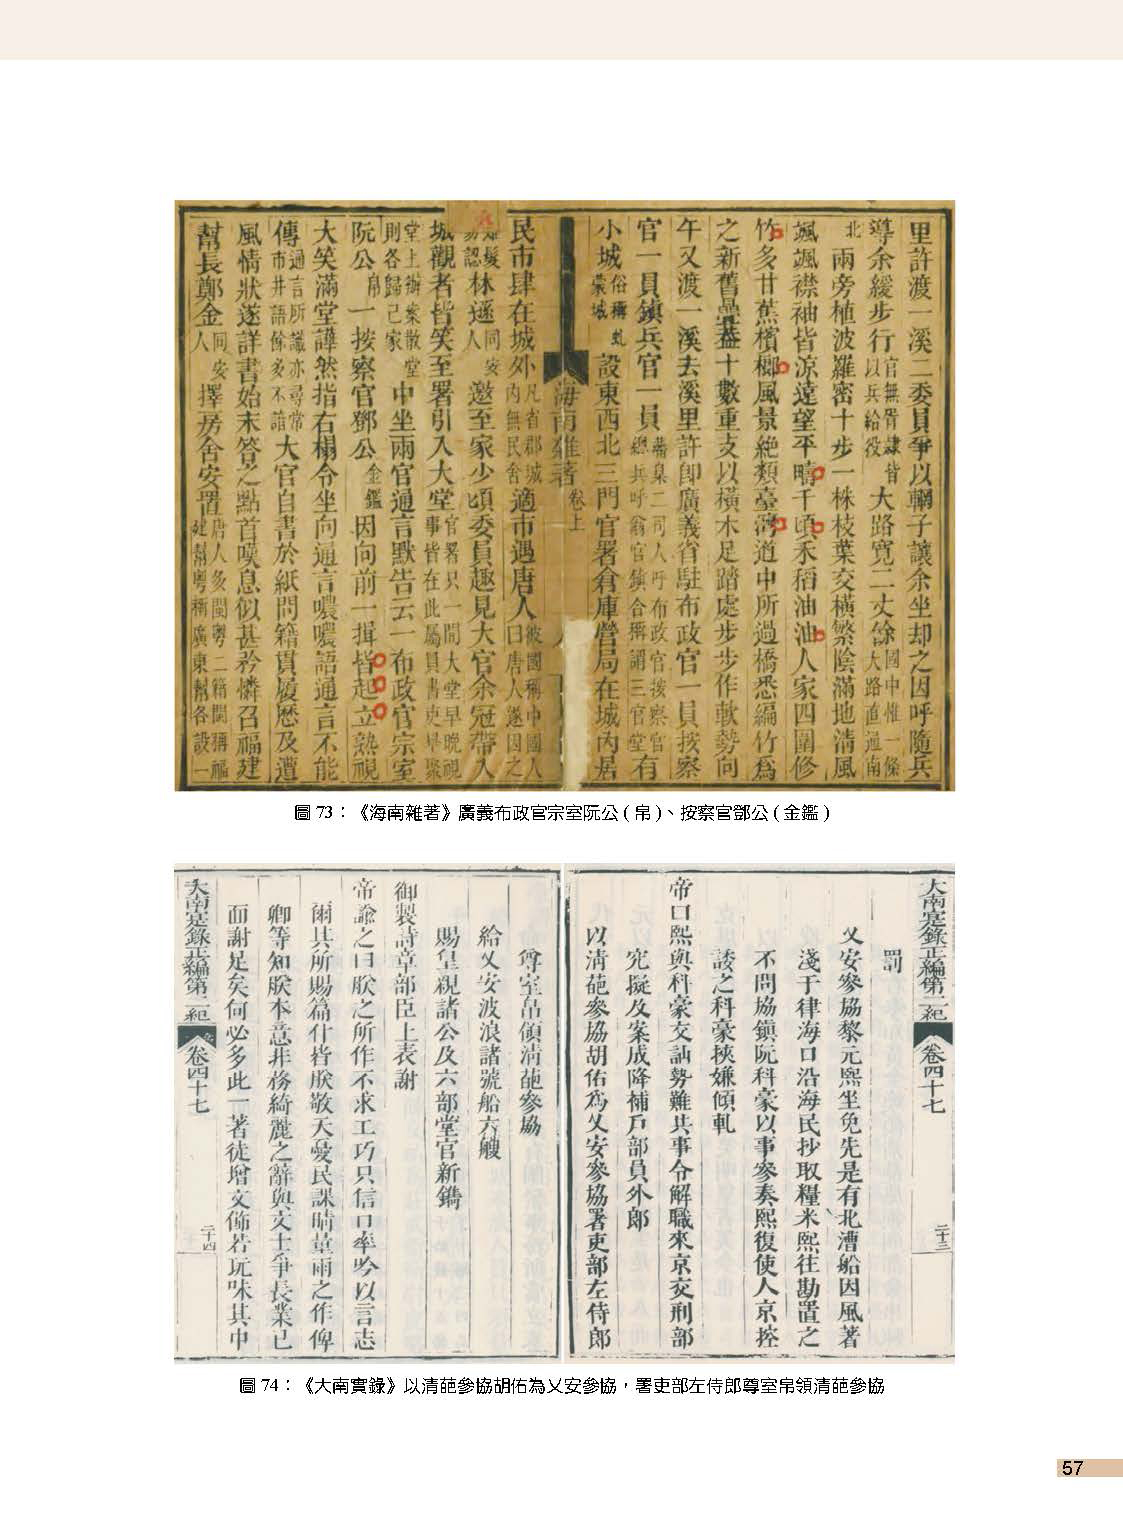 里許渡一溪二委員爭以輞子讓余坐却之因呼隨兵
導余緩步行官無胥隸皆以兵給役大路寬二丈餘國中惟一條大路直通南
北兩旁植波羅密十步一株枝葉交橫繁陰滿地清風
颯颯襟袖皆涼遠望平疇千頃禾稻油油人家四圍修
竹多甘蕉檳榔風景絕類臺灣道中所過橋悉編竹為
之新舊疊蓋十數重支以橫木足踏處步步作軟勢向
午又渡一溪去溪里許卽廣義省駐布政官一員按察
官一員鎮兵官一員藩臬二司人呼布政官按察官總兵呼翁官鎮合稱謂三官堂有
小城俗稱虬蒙城設東西北三門官署倉庫營局在城內居
海南雜著 卷上
民市肆在城外凡省郡城內無民舍適市遇唐人彼國稱中國人曰唐人遂因之
林遜同安人邀至家少頃委員趣見大官余冠帶入
城觀者皆笑至署引入大堂官署只一間大堂早晚視事皆在此屬員書吏畢聚
堂上辦案散堂則各歸己家中坐兩官通言默告云一布政官宗室
阮公帛一按察官鄧公金鑑因向前一揖皆起立熟視
大笑滿堂譁然指右榻令坐向通言噥噥語通言不能
傳通言所識亦尋常市井語餘多不諳大官自書於紙問籍貫履歷及遭
風情狀遂詳書始末答之點首嘆息似甚矜憐召福建
幫長鄭金同安人擇房舍安置唐人多閩粵二籍閩稱福建幫粵稱廣東幫各設一
圖 73：《海南雜著》廣義布政官宗室阮公 ( 帛 )、按察官鄧公 ( 金鑑 )
大南寔錄正編第二紀 卷四十七 二十三
罰
乂安參協黎元熙坐免先是有北漕船因風著
淺于律海口沿海民抄取糧米熙往勘置之
不問協鎮阮科豪以事參奏熙復使人京控
諉之科豪挾嫌傾軋
帝曰熙與科豪交訕勢難共事令解職來京交刑部
究擬及案成降補戶部員外郎
以清葩參協胡佑為乂安參協署吏部左侍郎
尊室帛領清葩參協
給乂安波浪諸號船六艘
賜皇親諸公及六部堂官新鐫
御製詩章部臣上表謝
帝諭之曰朕之所作不求工巧只信口率吟以言志
爾其所賜篇什皆朕敬天愛民課晴量雨之作俾
卿等知朕本意非務綺麗之辭與文士爭長業已
面謝足矣何必多此一著徒增文飾若玩味其中
大南寔錄正編第二紀 卷四十七 二十四
圖 74：《大南實錄》以清葩參協胡佑為乂安參協，署吏部左侍郎尊室帛領清葩參協
57